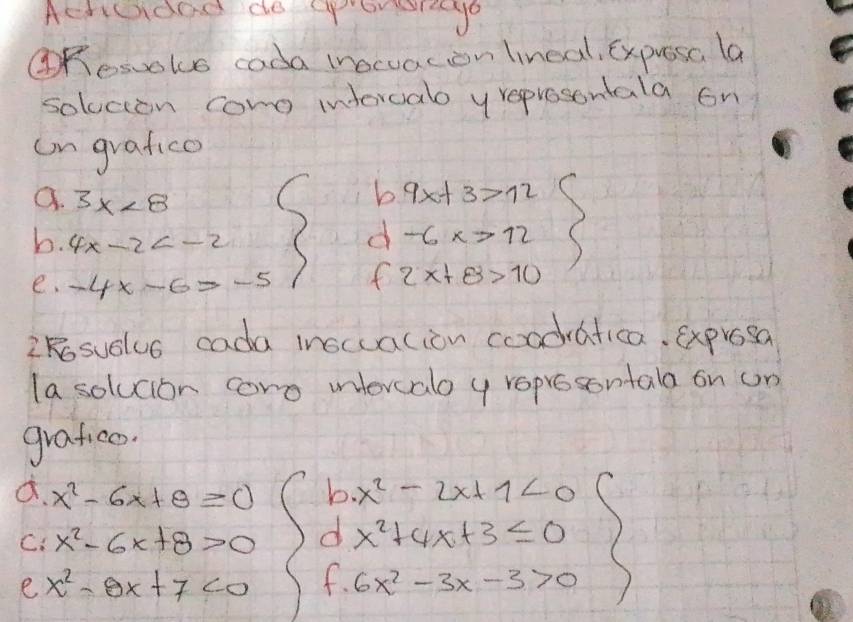 Actividad de aprendizaje
① Resuelve cada inecuacion lineal. Expresa la
solucion como intervalo y representala en
un grafico
a. 3x < 8 b 9x + 3 > 12
b. 4x - 2 < -2 d -6x > 12
e. -4x - 6 > -5 f 2x + 8 > 10
2 Resuelve cada inecuación cuadrática. Expresa
la solucion como intervalo y representala en un
grafico.
a. x² - 6x + 8 ≥ 0 b. x² - 2x + 1 < 0
c: x² - 6x + 8 > 0 d x² + 4x + 3 ≤ 0
e x² - 8x + 7 < 0 f. 6x² - 3x - 3 > 0